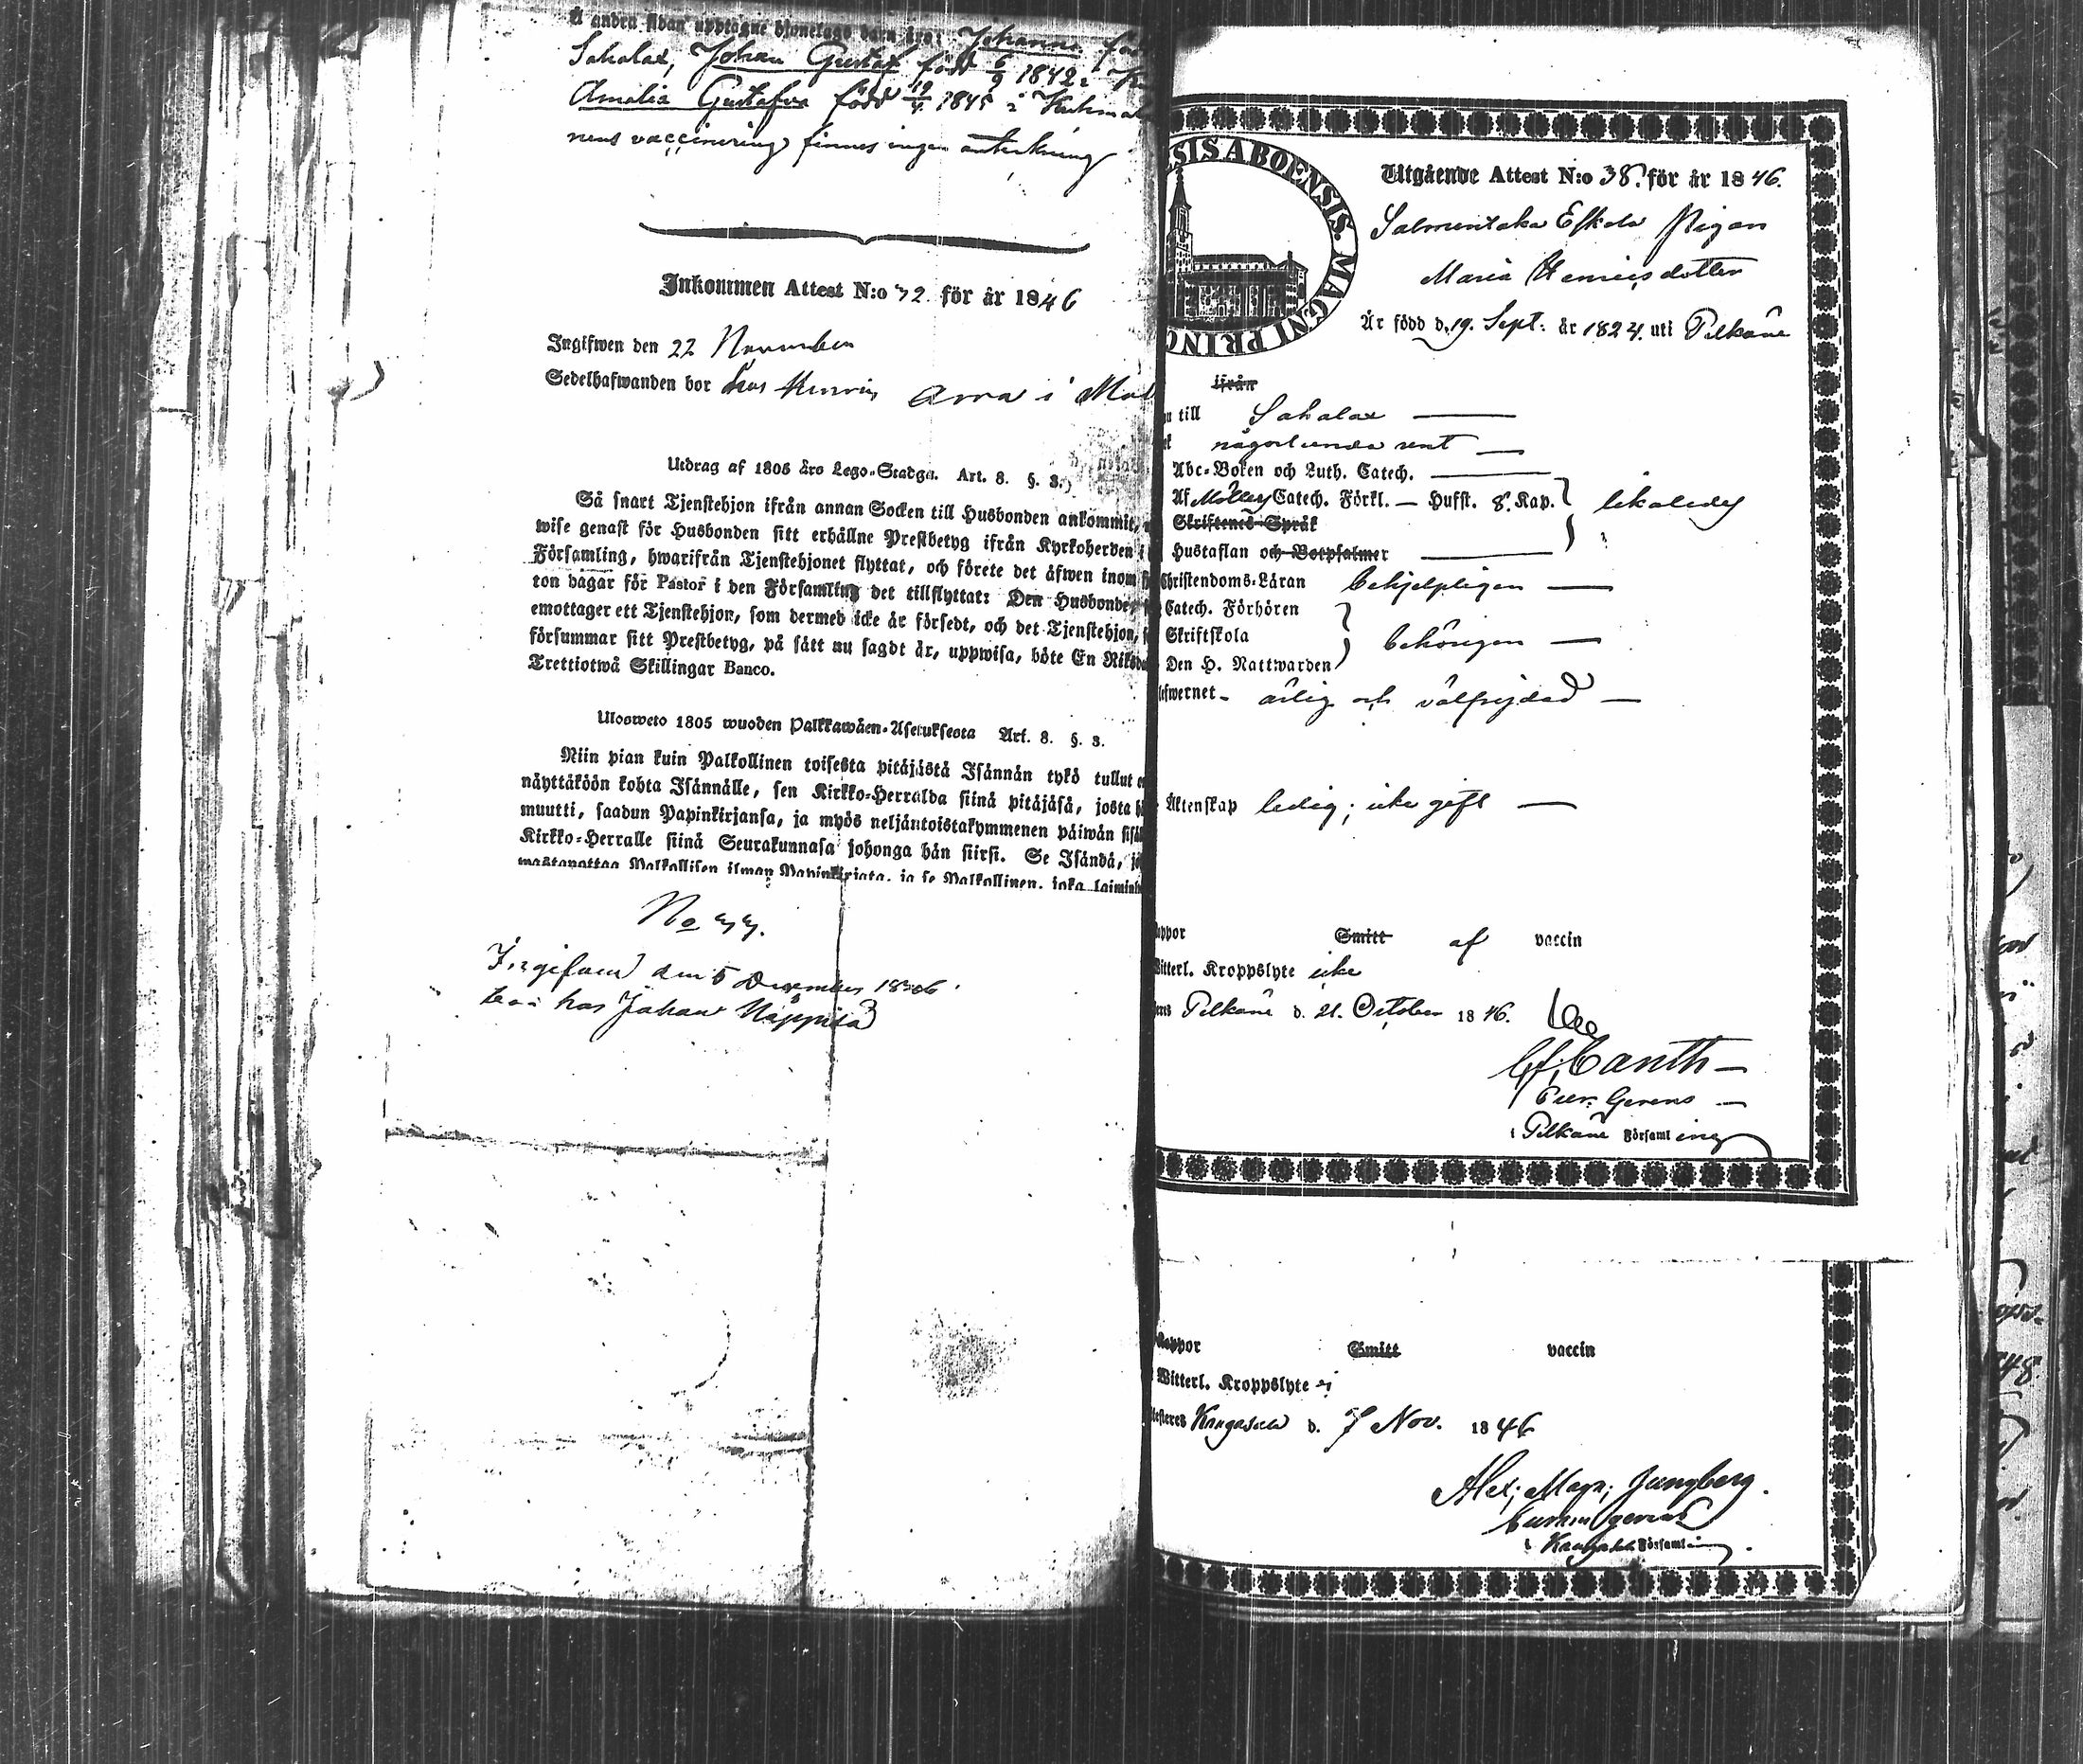 Å andra sidan upptagne hjonelags barn äro: Johanna
Sahalax, Johan Gustaf född 6/9 1842 i
Amalia Gustafva född 19/4 1845 i Kuhmal
nens vaccinering finnes ingen anteckning
Inkommen Attest N:o 72 för år 1846
Ingifwen den 22 November
Sedelhafwanden bor hos Henric i
Utdrag af 1805 års Lego-Stadga. Art. 8. §. 3.
Så snart Tjenstehjon ifrån annan Socken till Husbonden ankommit,
wise genast för Husbonden sitt erhållne Prestbetyg ifrån Kyrkoherden i
Församling, hwarifrån Tjenstehjonet flyttat, och förete det äfwen inom
ton dagar för Pastor i den Församling det tillflyttat: Den Husbonde,
emottager ett Tjenstehjon, som dermed icke är försedt, och det Tjenstehjon,
försummar sitt Prestbetyg, på sätt nu sagdt är, uppwisa, böte En Riksda
Trettiotwå Skillingar Banco.
Ulosweto 1805 wuoden Palkkawäen-Asetuksesta Art. 8. §. 3.
Niin pian kuin Palkollinen toisesta pitäjästä Isännän tykö tullut
näyttäköön kohta Isännälle, sen Kirkko-Herralda siinä pitäjäsä, josta
muutti, saadun Papinkirjansa, ja myös neljäntoistakymmenen päiwän sisäl
Kirkko-Herralle siinä Seurakunnasa johonga hän siirsi. Se Isändä,
wastaanottaa Palkollisen ilman Papinkirjata, ja se Palkollinen, joka laiminly
No
Ingifven den 5 December 1846
hos Johan Näppilä
SIS ABOENSIS. MAGNI PRINC
Utgående Attest N:o 38. för år 1846.
Salmentaka Eskola Pigan
Maria Henricsdotter
Är född d. 19. Sept: år 1824. uti Pelkäne
ifrån
till Sahalax
någorlunda rent
Abc-Boken och Luth. Catech.
Af Möllers Catech. Förkl. — Hufst. 8. Kap. likaledes
Skriftenes Språk
Hustaflan och Botpsalmer
Christendoms-Läran behjelpligen
Catech. Förhören
Skriftskola behörigen
Den H. Nattwarden
efwernet ärlig och välfrejdad
Äktenskap ledig; icke gift
oppor Smitt af vaccin
Witterl. Kroppslyte icke
Pelkäne d. 21. October 1846.
Canth
Gerens
i Pelkäne Församling
Koppor Smitt vaccin
Witterl. Kroppslyte ej
Kangasala d. 7 Nov. 1846
Alex; Magn; Ljungberg.
gerens
i Kangasala Församling